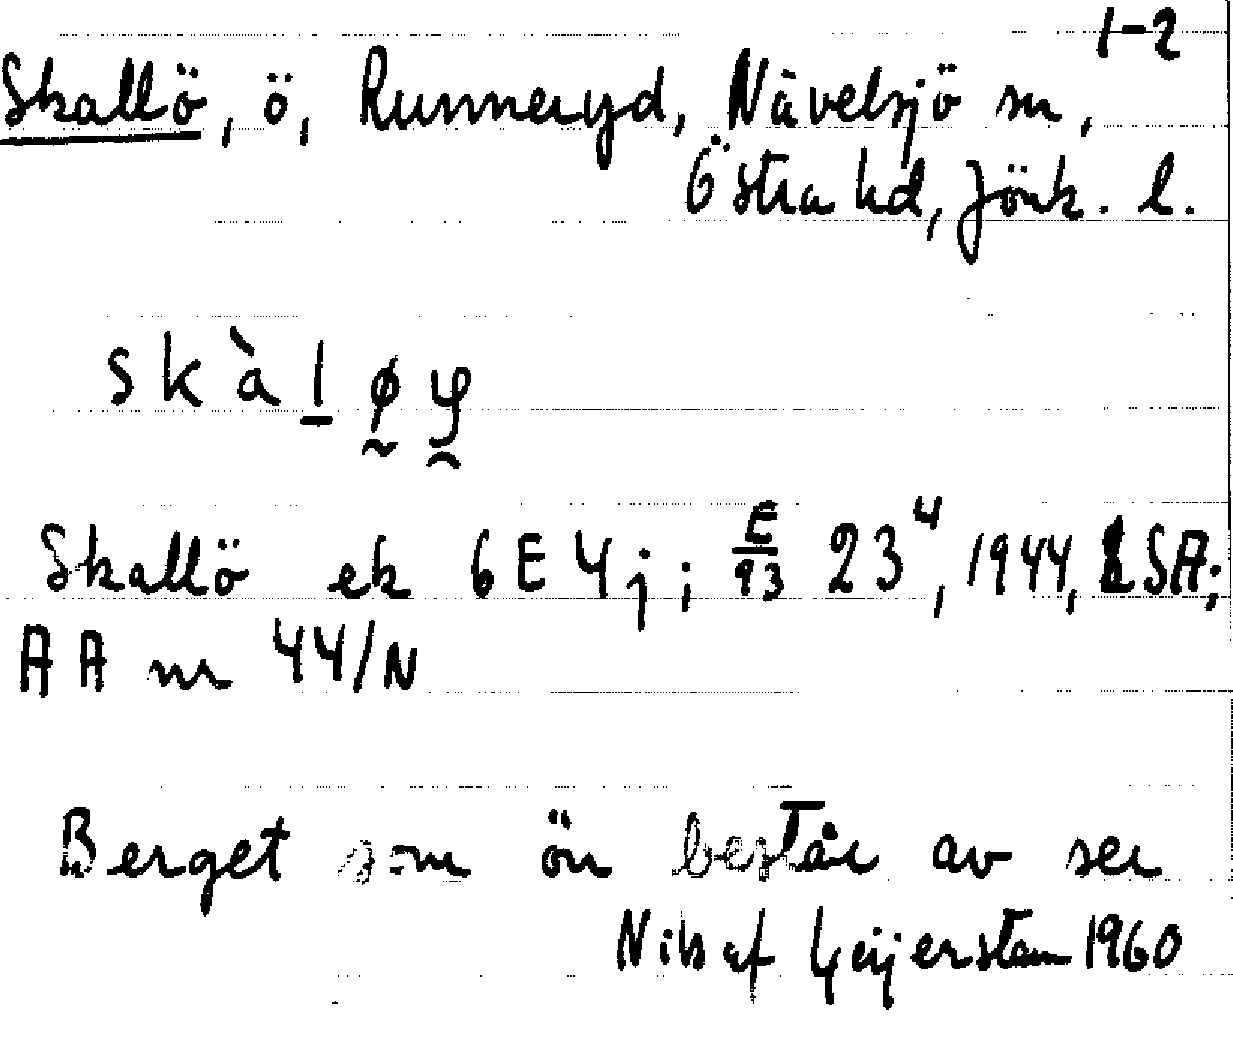 1-2
Skallö, ö, Runneryd, Nävelsjö sn,
Östra hd, Jönk. l.
skàl̲ø̰y̯
Skallö ek 6E4j; E/93 23⁴, 1944, LSA;
AA nr 44/N
Berget som ön består av ser
Nils af Geijerstam 1960